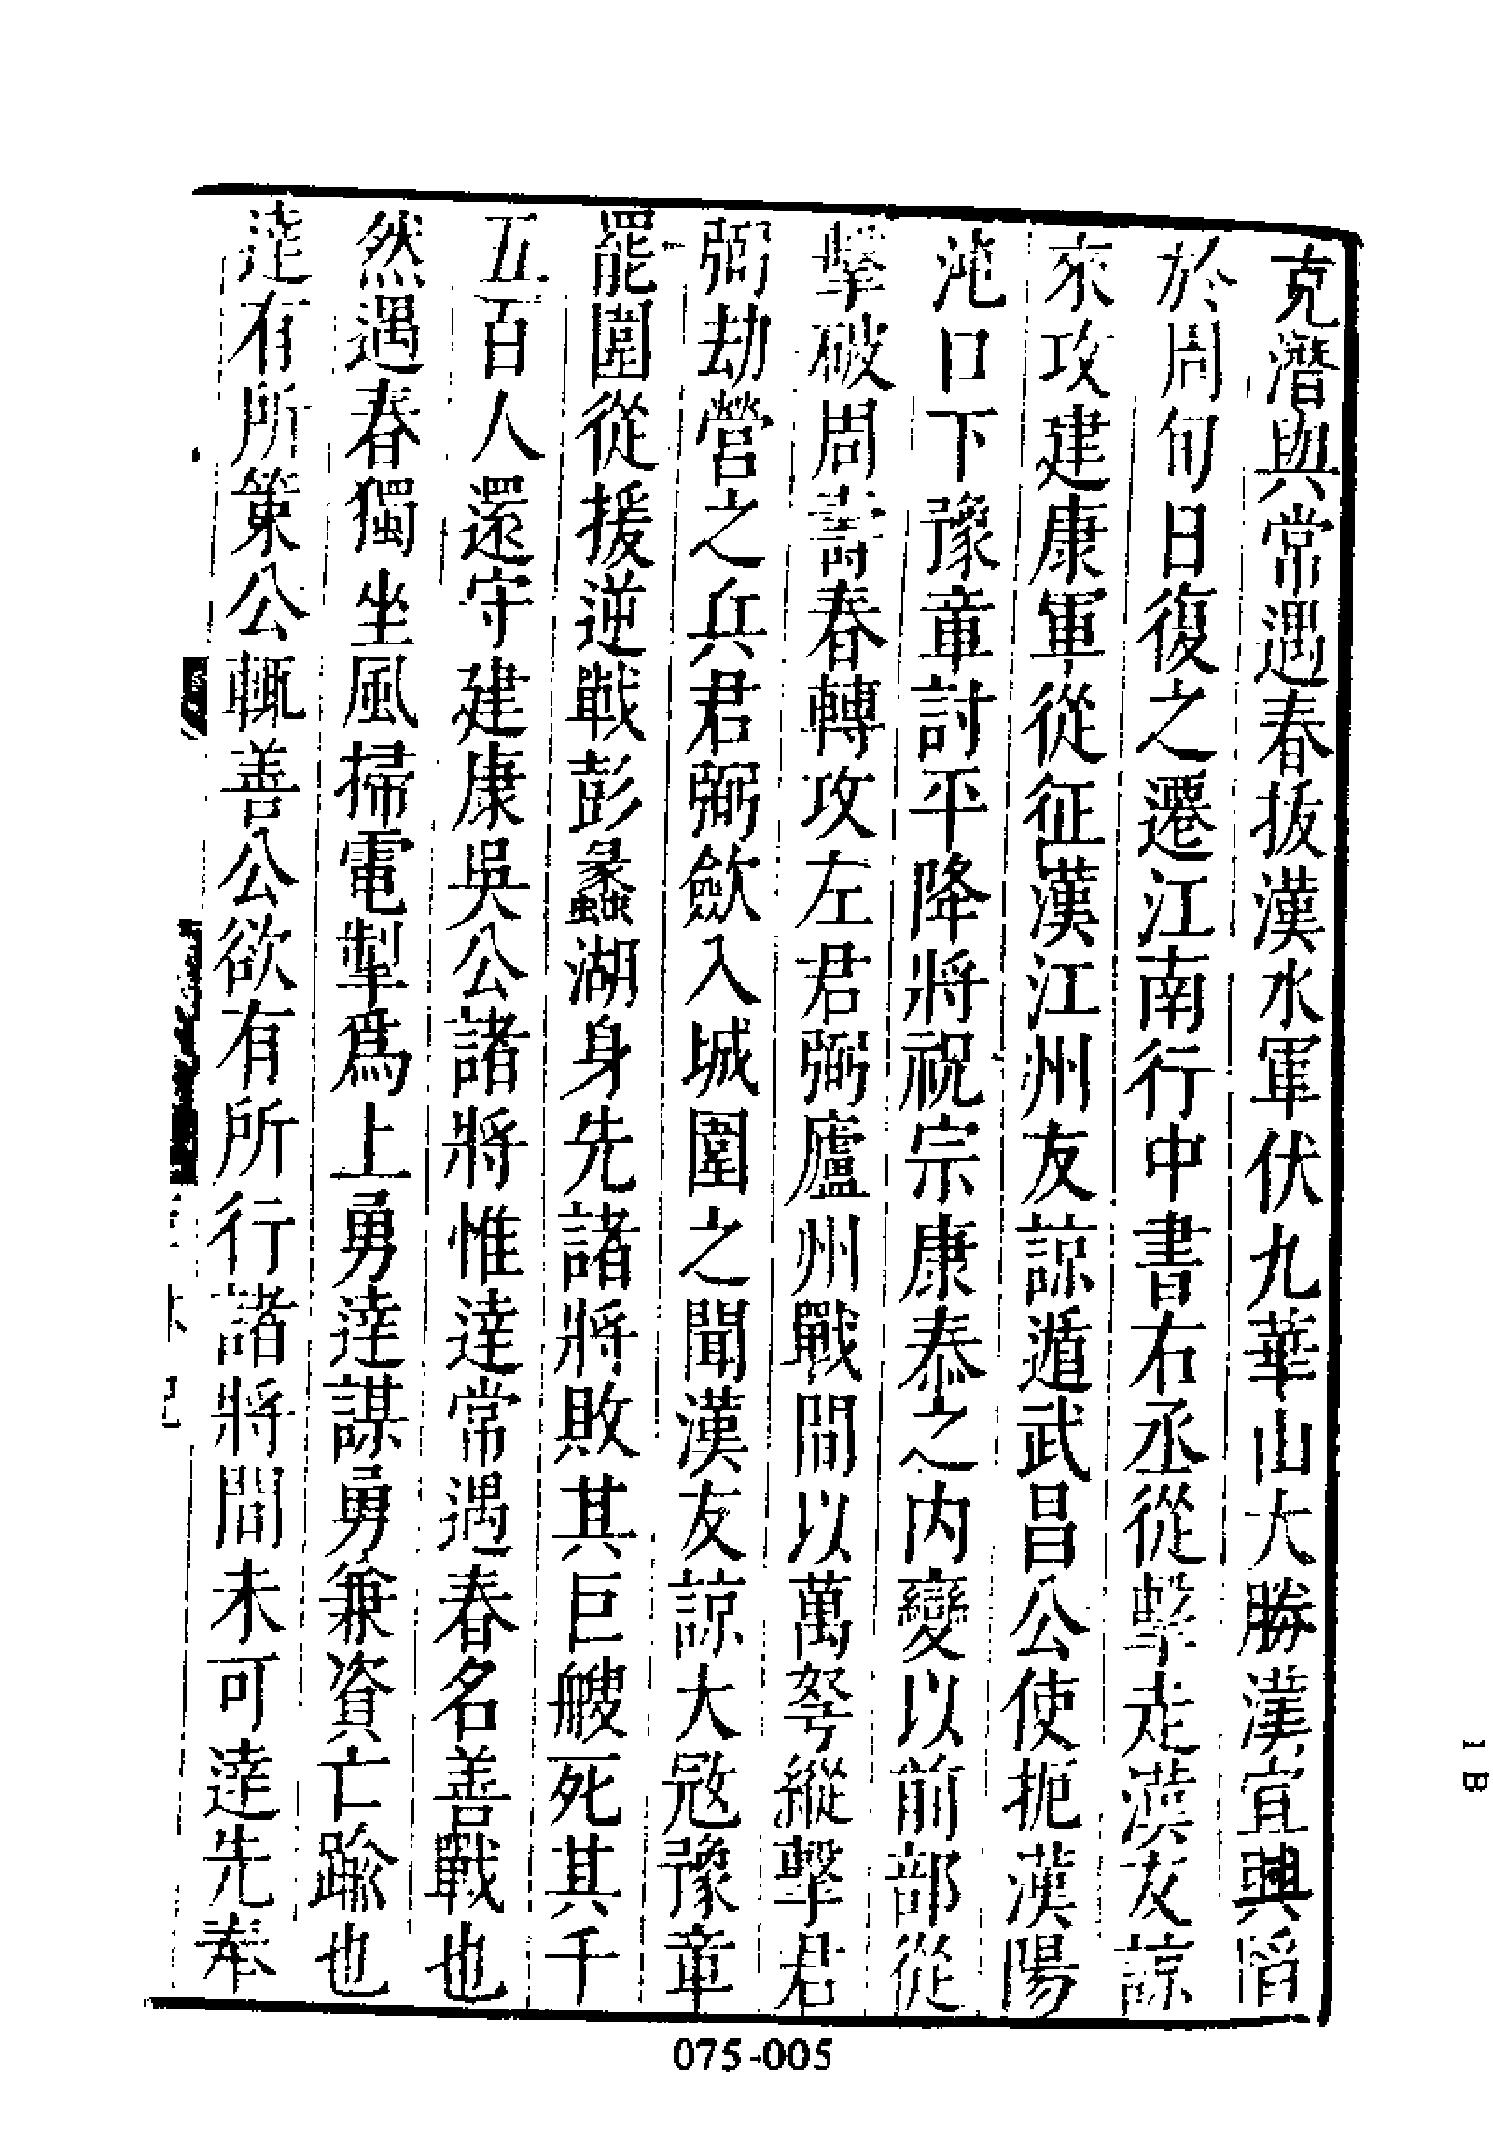 克潛與常遇春拔漢水軍伏九華山大勝漢宜興陷
於周旬日復之遷江南行中書右丞從擊走漢友諒
來攻建康軍從征漢江州友諒遁武昌公使扼漢陽
沌口下豫章討平降將祝宗康泰之內變以前部從
擊破周壽春轉攻左君弼廬州戰間以萬弩縱擊君
弼劫營之兵君弼斂入城圍之聞漢友諒大寇豫章
罷圍從援逆戰彭蠡湖身先諸將敗其巨艘死其千
五百人還守建康吳公諸將惟達常遇春名善戰也
然遇春獨坐風掃電掣為上勇達謀勇兼資亡踰也
達有所策公輒善公欲有所行諸將間未可達先奉
075-005
1B